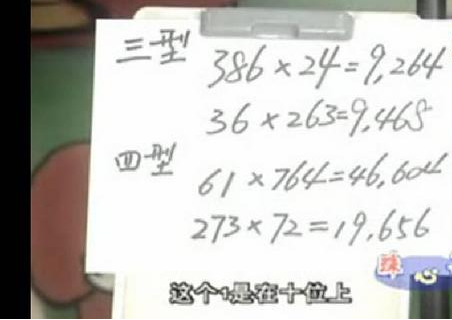 三型
386×24=9,264
36×263=9,468
四型
61×764=46,604
273×72=19,656
珠心
这个1是在十位上